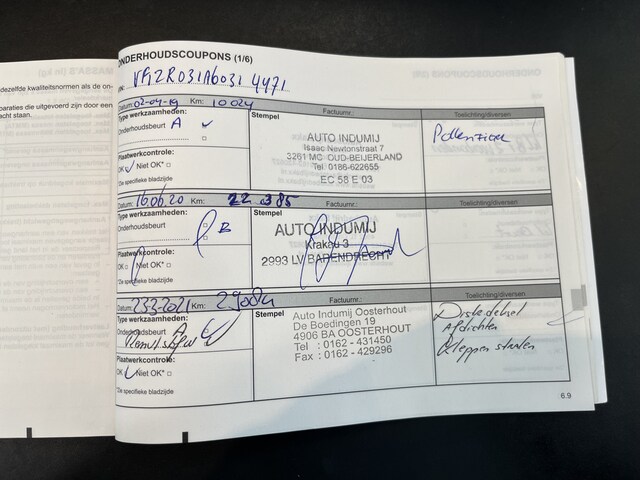 dezelfde kwaliteitsnormen als de on-
paraties die uitgevoerd zijn door een
acht staan.
ONDERHOUDSCOUPONS (1/6)
Datum: 02-04-19 Km: 10024 Factuurnr.: Toelichting/diversen
Type werkzaamheden: Stempel
Onderhoudsbeurt A
Plaatwerkcontrole:
OK Niet OK*
*Zie specifieke bladzijde
AUTO INDUMIJ
Isaac Newtonstraat 7
3261 MC OUD-BEIJERLAND
Tel. 0186-622655
EC 58 E 03
Pollenfilter
Datum: 16.06.20 Km: 22.385 Factuurnr.: Toelichting/diversen
Type werkzaamheden: Stempel
Onderhoudsbeurt B
Plaatwerkcontrole:
OK Niet OK*
*Zie specifieke bladzijde
AUTO INDUMIJ
Krakau 3
2993 LV BARENDRECHT
Datum: 23-3-2021 Km: 29084 Factuurnr.: Toelichting/diversen
Type werkzaamheden: Stempel
Onderhoudsbeurt A
Plaatwerkcontrole:
OK Niet OK*
*Zie specifieke bladzijde
Auto Indumij Oosterhout
De Boedingen 19
4906 BA OOSTERHOUT
Tel : 0162 - 431450
Fax : 0162 - 429296
Afdichten
Kleppen stralen
6.9